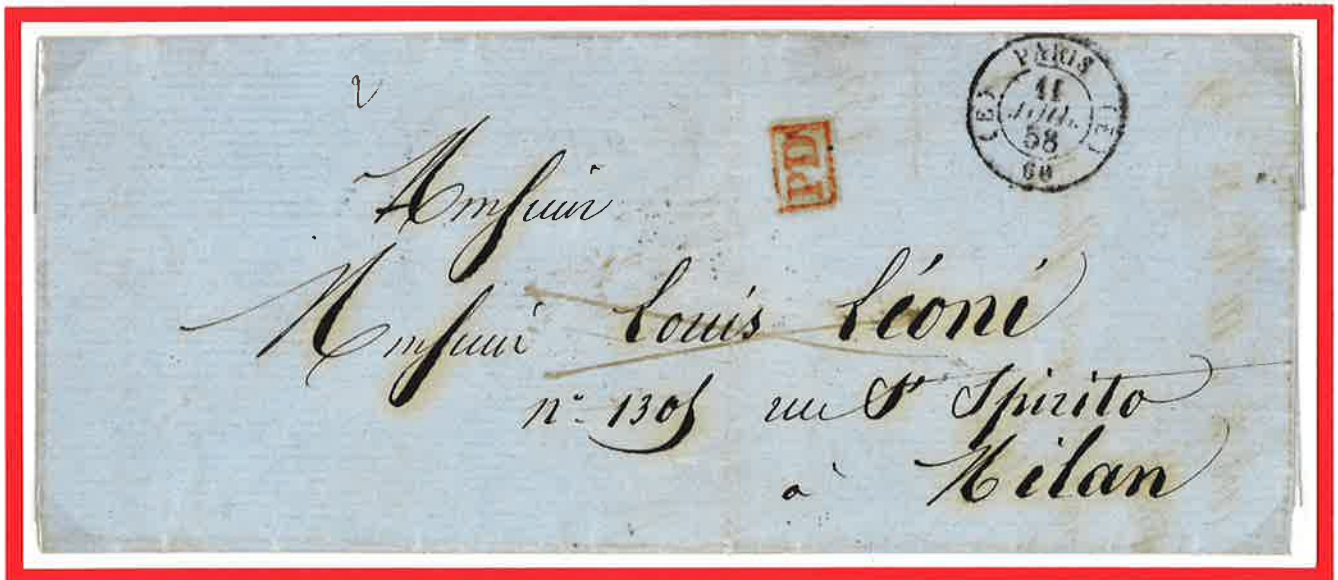 2
PARIS
(E) (E)
11
JUIL.
58
60
PD
Monsieur
Monsieur Louis Léoni
n° 1305 rue St Spirito
à Milan